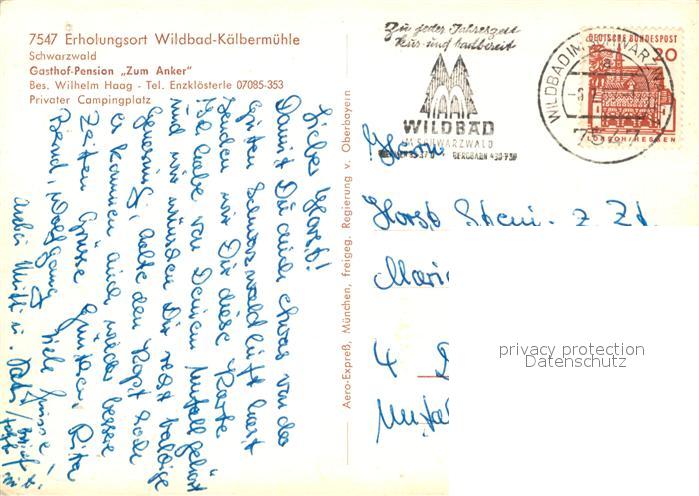 7547 Erholungsort Wildbad-Kälbermühle
Schwarzwald
Gasthof-Pension „Zum Anker"
Bes. Wilhelm Haag - Tel. Enzklösterle 07085-353
Privater Campingplatz
Zu jeder Jahreszeit
kur- und badbereit
WILDBAD
IM SCHWARZWALD
BERGBAHN 430-750
DEUTSCHE BUNDESPOST
20
LORSCH/HESSEN
WILDBAD IM SCHWARZW
Aero-Expreß, München, freigeg. Regierung v. Oberbayern
Lieber Horst!
Damit Du auch etwas von der
guten Schwarzwaldluft hast
senden wir Dir diese Karte
Ich habe von Deinem Unfall gehört
und wir wünschen Dir recht baldige
Genesung, halte den Kopf hoch
es kommen auch wieder bessere
Zeiten Grüsse Günter, Rita
Bernd, Wolfgang viele Grüsse
Herrn
Horst z. Zt.
Mari
4
privacy protection
Datenschutz